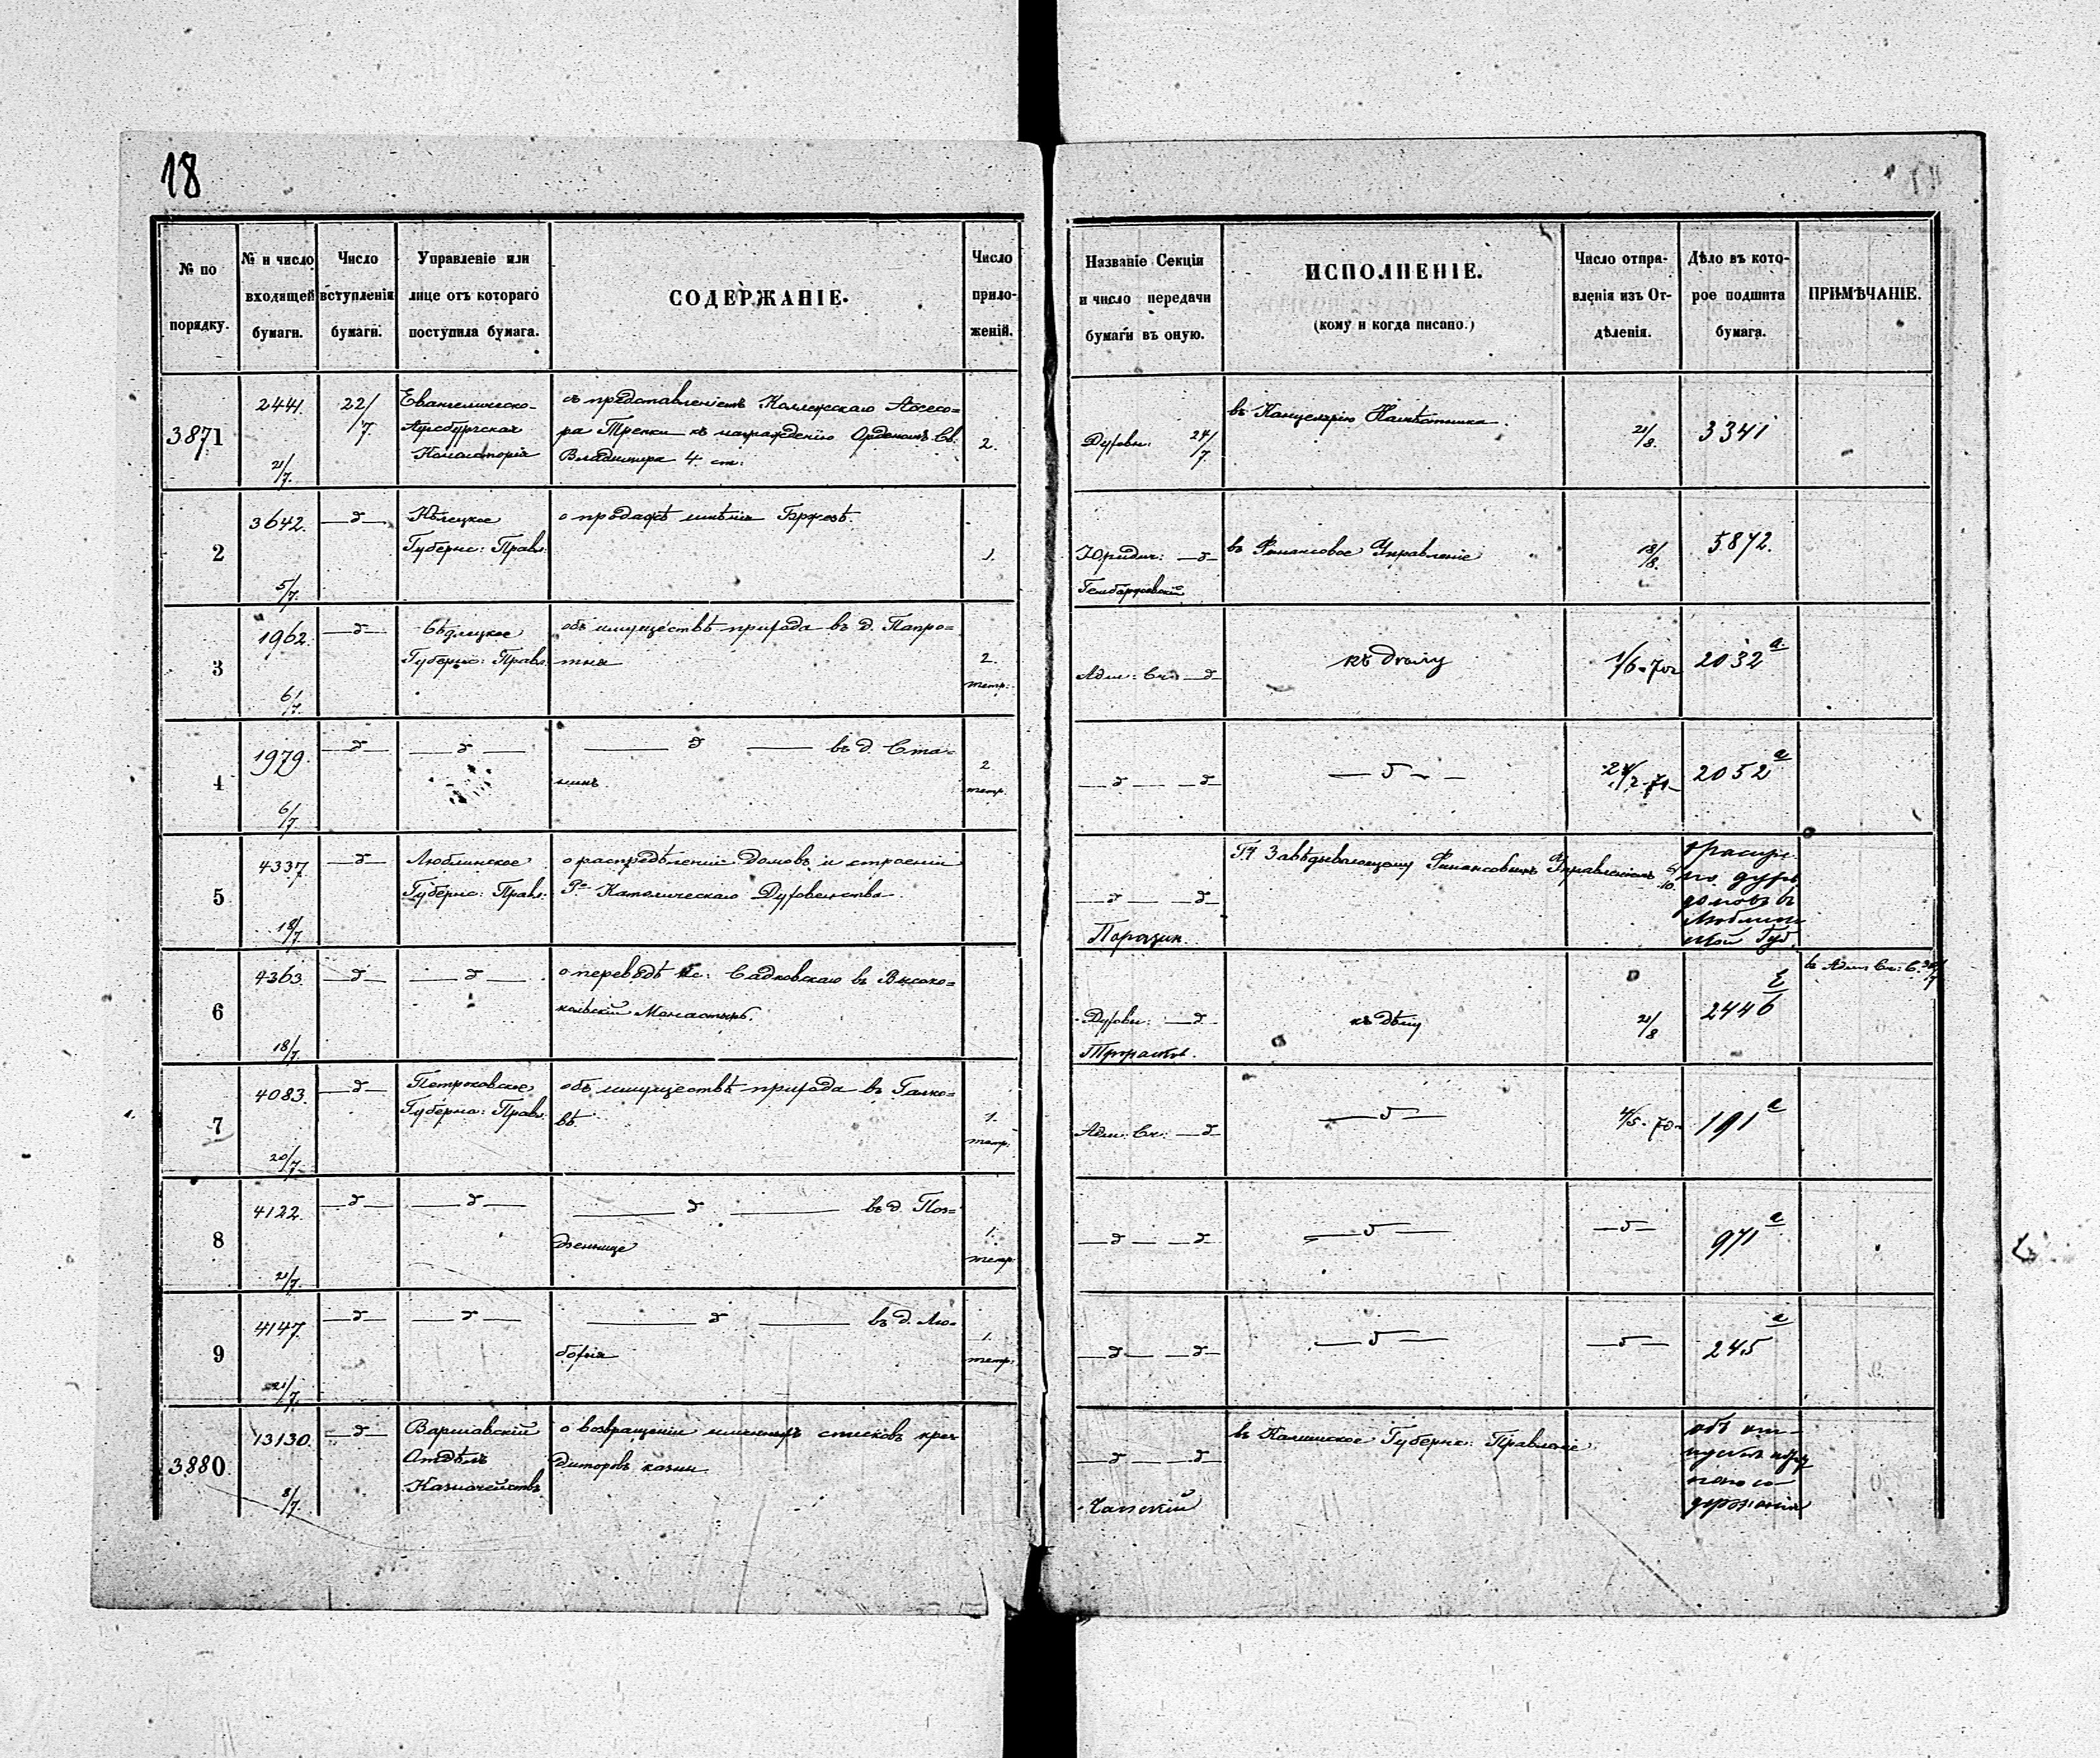 18
№ по порядку.
№ и число входящей бумаги.
Число вступленія бумаги.
Управленіе или лице отъ котораго поступила бумага.
СОДЕРЖАНІЕ.
Число прило- женій.
Названіе Секціи и число передачи бумаги въ оную.
ИСПОЛНЕНІЕ.
(кому и когда писано.)
Число отпра- вленія изъ От- дѣленія.
Дѣло въ кото- рое подшита бумага.
ПРИМѢЧАНІЕ.
3871
2441.
21/7.
22/7.
Евангелическо-
Аугсбургская
Консисторія
съ представленіемъ Коллежскаго Ассесо=
ра Трепки къ награжденію Орденомъ Св.
Владиміра 4 ст:
2.
Духовн: 24/7.
въ Канцелярію Намѣстника.
21/8.
3341
2
3642.
5/7.
—д—
Кѣлецкое
Губернс: Правл:
о продажѣ имѣнія Бржезѣ.
1.
Юридич: —д—
въ Финансовое Управленіе
18/8.
5872.
3
1962
6/7.
—д—
Сѣдлецкое
Губернс: Правл:
объ имуществѣ прихода въ д. Папро=
тня
2.
тетр:
Адм: Ск: —д—
къ дѣлу
1/6-70
2032 а.
4
1979.
6/7.
—д—
—д—
—д— въ д. Ста=
нинъ
2
тетр.
—д— —д—
—д—
2052 а
5
4337.
18/7.
—д—
Люблинское
Губернс: Правл:
о распредѣленіи домовъ и строеній
Р= Католическаго Духовенства
—д— —д—
Завѣдывающему Финансовымъ Управленіемъ
домовъ въ
Люблин
ской Губ.
6
4363.
18/7.
—д—
—д—
о переводѣ кс: Садковскаго въ Высоко=
кольскій Монастырь.
Духовн: —д—
къ дѣлу
21/8
2446
въ Адм: Ск:
7
4083.
20/7.
—д—
Петроковское
Губернс: Правл:
объ имуществѣ прихода въ Галко=
вѣ
1.
тетр:
Адм: Ск: —д—
—д—
4/5-70
191 а
8
4122.
21/7.
—д—
—д—
—д— въ д. Поз=
дзеницe
1.
тетр
—д— —д—
—д—
—д—
971 а
9
4147.
21/7.
—д—
—д—
—д— въ д. Лю=
бохня
1.
тетр:
—д— —д—
—д—
—д—
245 а
3880.
13130.
8/7.
—д—
Варшавскій
Отдѣлъ
Казначействъ
о возвращеніи именныхъ списковъ кре
диторовъ казны
—д— —д—
Чапскій
въ Калишское Губернс: Правленіе
объ от-
пускѣ